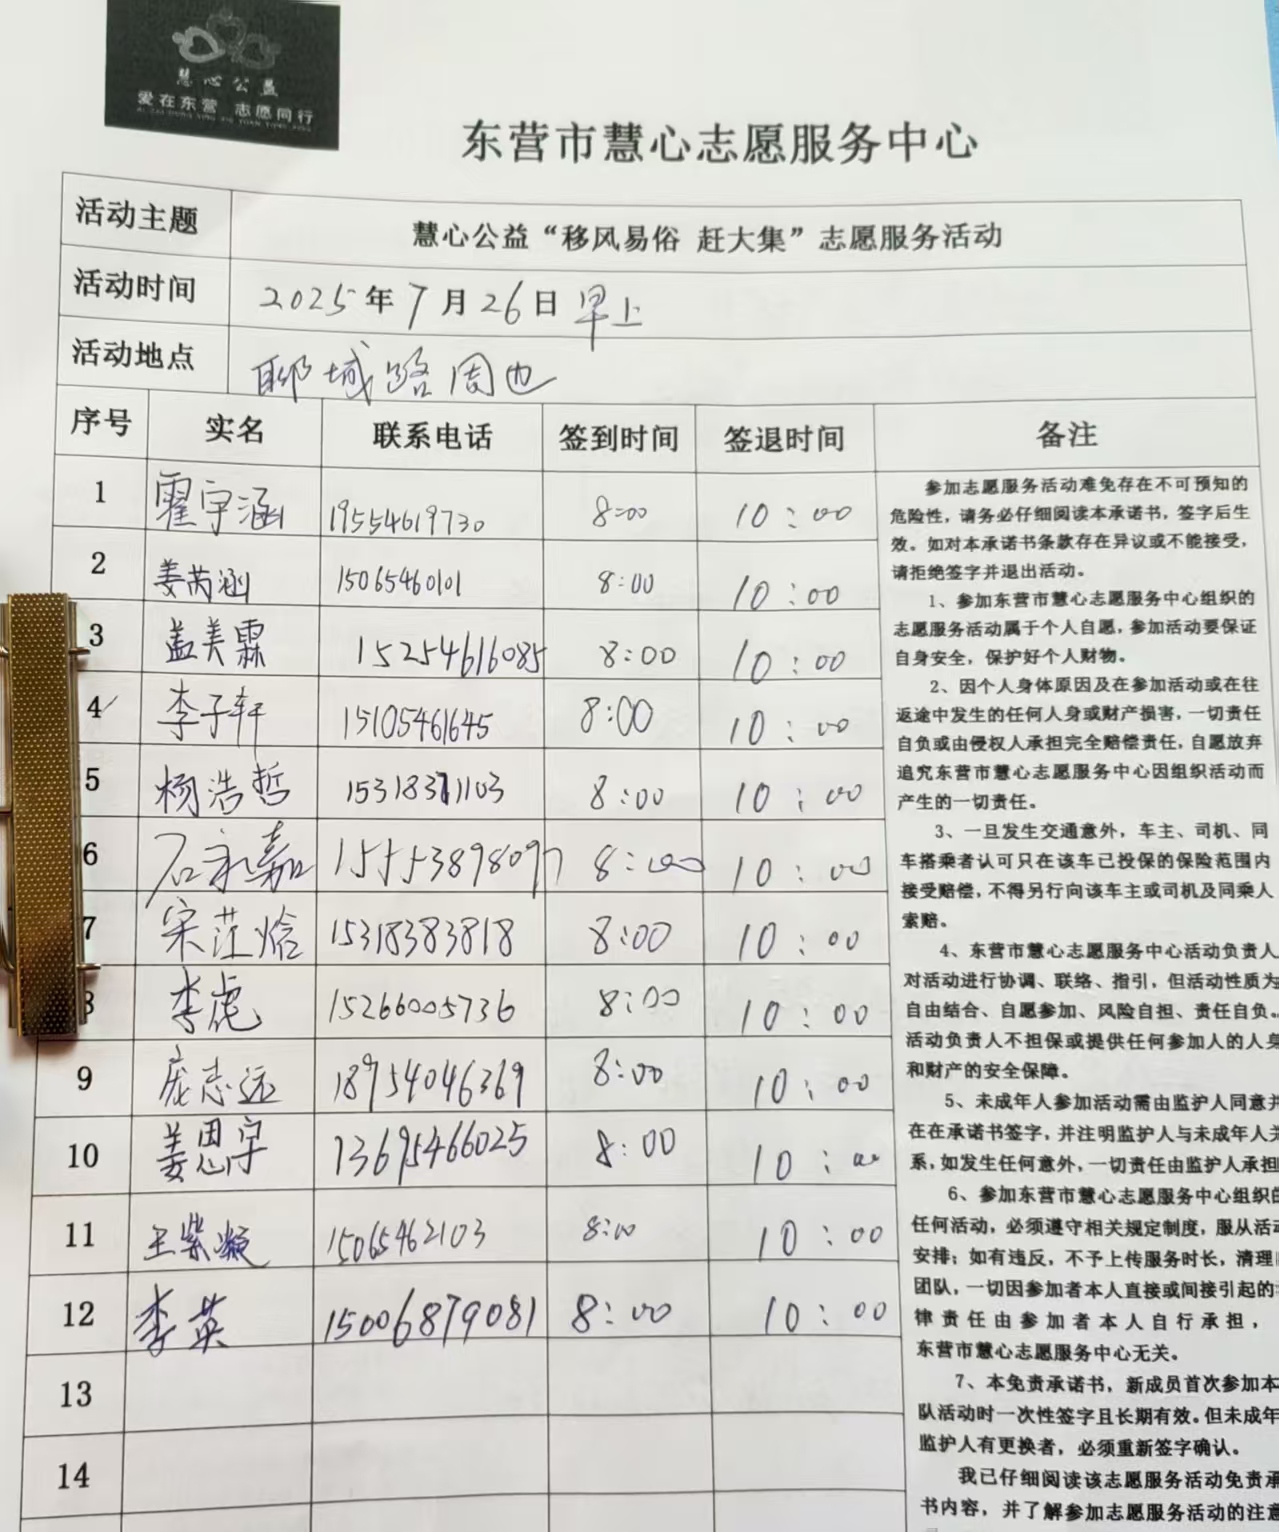 慧心公益
爱在东营 志愿同行
东营市慧心志愿服务中心
活动主题 慧心公益“移风易俗 赶大集”志愿服务活动
活动时间 2025年7月26日早上
活动地点 聊城路周边
序号 实名 联系电话 签到时间 签退时间 备注
1 霍宇涵 19554619730 8:00 10:00
2 姜芮涵 15065460101 8:00 10:00
3 盖美霖 15254616085 8:00 10:00
4 李子轩 15105461645 8:00 10:00
5 杨浩哲 15318311103 8:00 10:00
6 石永嘉 15553898097 8:00 10:00
7 宋 15318383818 8:00 10:00
8 李虎 15266005736 8:00 10:00
9 庞志远 18954046369 8:00 10:00
10 姜思宇 13695466025 8:00 10:00
11 王紫凝 15065462103 8:00 10:00
12 李英 15006879081 8:00 10:00
13
14
参加志愿服务活动难免存在不可预知的
危险性，请务必仔细阅读本承诺书，签字后生
效。如对本承诺书条款存在异议或不能接受，
请拒绝签字并退出活动。
1、参加东营市慧心志愿服务中心组织的
志愿服务活动属于个人自愿，参加活动要保证
自身安全，保护好个人财物。
2、因个人身体原因及在参加活动或在往
返途中发生的任何人身或财产损害，一切责任
自负或由侵权人承担完全赔偿责任，自愿放弃
追究东营市慧心志愿服务中心因组织活动而
产生的一切责任。
3、一旦发生交通意外，车主、司机、同
车搭乘者认可只在该车已投保的保险范围内
接受赔偿，不得另行向该车主或司机及同乘人
索赔。
4、东营市慧心志愿服务中心活动负责人
对活动进行协调、联络、指引，但活动性质为
自由结合、自愿参加、风险自担、责任自负。
活动负责人不担保或提供任何参加人的人身
和财产的安全保障。
5、未成年人参加活动需由监护人同意并
在在承诺书签字，并注明监护人与未成年人关
系，如发生任何意外，一切责任由监护人承担
6、参加东营市慧心志愿服务中心组织的
任何活动，必须遵守相关规定制度，服从活动
安排；如有违反，不予上传服务时长，清理
团队，一切因参加者本人直接或间接引起的
律责任由参加者本人自行承担，
东营市慧心志愿服务中心无关。
7、本免责承诺书，新成员首次参加本
队活动时一次性签字且长期有效。但未成年
监护人有更换者，必须重新签字确认。
我已仔细阅读该志愿服务活动免责承
书内容，并了解参加志愿服务活动的注意